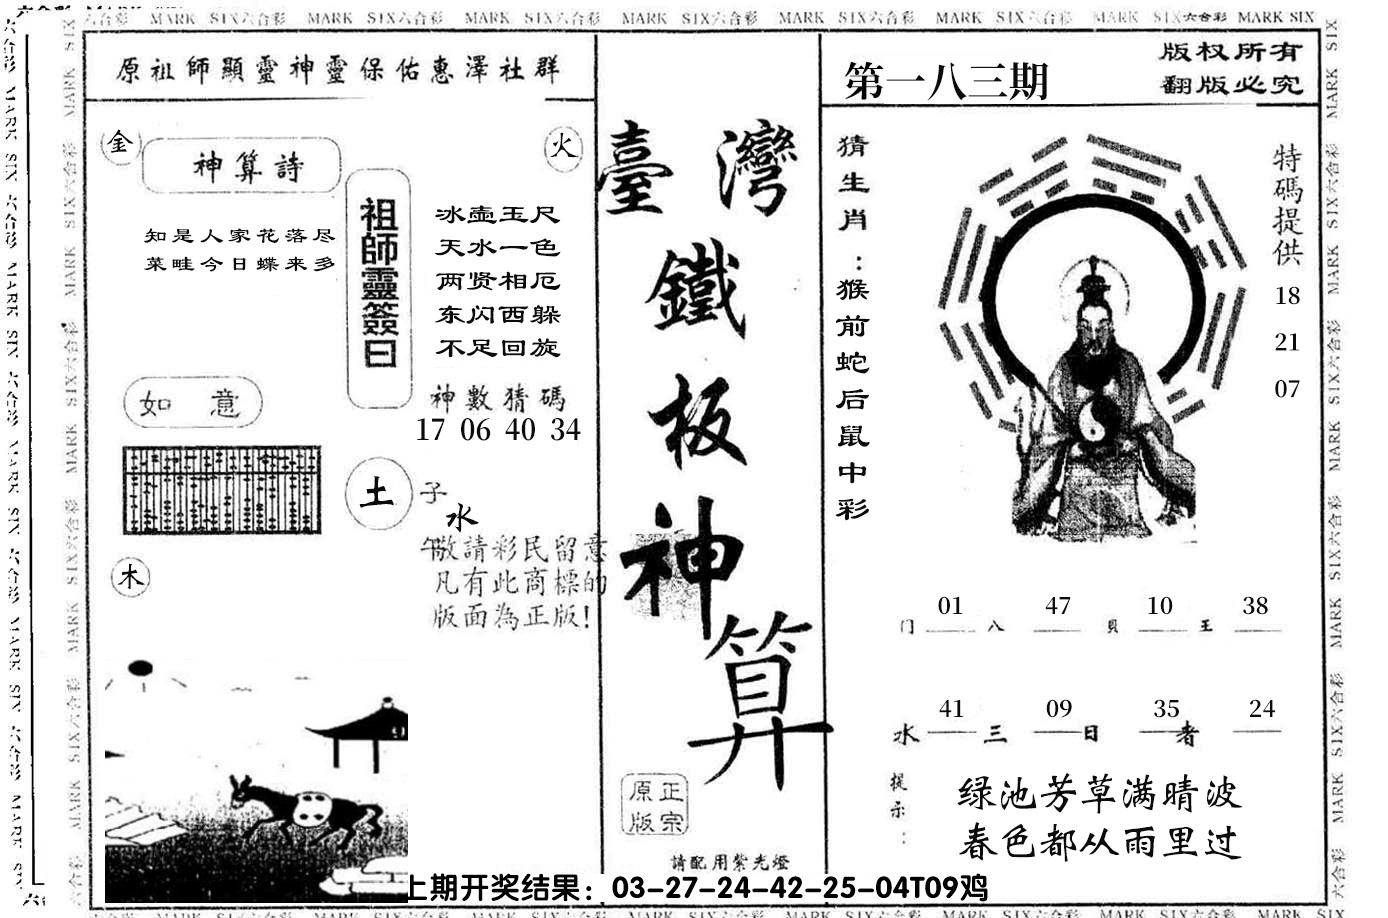 MARK SIX六合彩 MARK SIX六合彩 MARK SIX六合彩 MARK SIX六合彩 MARK SIX六合彩 MARK SIX六合彩 MARK SIX六合彩 MARK SIX
原祖師顯靈神靈保佑惠澤社群
金
火
神算詩
知是人家花落尽
菜畦今日蝶来多
祖師靈簽曰
冰壶玉尺
天水一色
两贤相厄
东闪西躲
不足回旋
神數猜碼
17 06 40 34
如 意
土
子
水
午
木
敬請彩民留意
凡有此商標的
版面為正版!
臺灣
鐵
板
神
算
正宗
原版
請配用紫光燈
第一八三期
版权所有
翻版必究
猜生肖:猴前蛇后鼠中彩
特碼提供
18
21
07
01 47 10 38
门 八 貝 王
41 09 35 24
水 三 日 者
提示:
绿池芳草满晴波
春色都从雨里过
上期开奖结果:03-27-24-42-25-04T09鸡